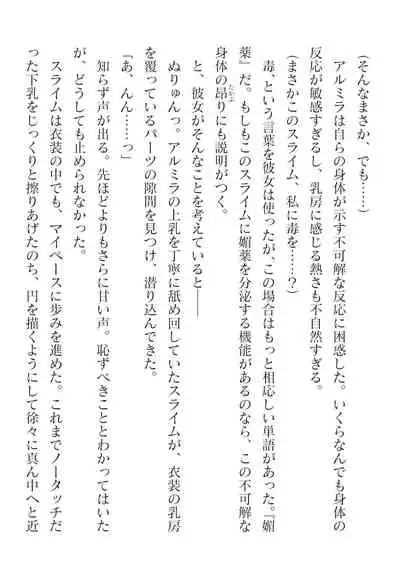 (そんなまさか、でも……)
アルミラは自らの身体が示す不可解な反応に困惑した。いくらなんでも身体の
反応が敏感すぎるし、乳房に感じる熱さも不自然すぎる。
(まさかこのスライム、私に毒を……？)
毒、という言葉を彼女は使ったが、この場合はもっと相応しい単語があった。『媚
薬』だ。もしもこのスライムに媚薬を分泌する機能があるのなら、この不可解な
身体の昂りにも説明がつく。
と、彼女がそんなことを考えていると――
ぬりゅんっ。アルミラの上乳を丁寧に舐め回していたスライムが、衣装の乳房
を覆っているパーツの隙間を見つけ、潜り込んできた。
「あ、んん……っ」
知らず声が出る。先ほどよりもさらに甘い声。恥ずべきこととわかってはいた
が、どうしても止められなかった。
スライムは衣装の中でも、マイペースに歩みを進めた。これまでノータッチだ
った下乳をじっくりと擦りあげたのち、円を描くようにして徐々に真ん中へと近